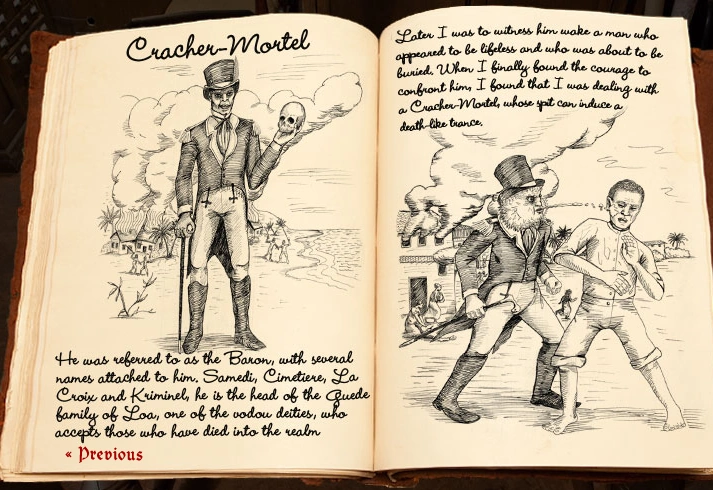 Cracher-Mortel
He was referred to as the Baron, with several
names attached to him, Samedi, Cimetiere, La
Croix and Kriminel, he is the head of the Guede
family of Loa, one of the vodou deities, who
accepts those who have died into the realm
« Previous
Later I was to witness him wake a man who
appeared to be lifeless and who was about to be
buried. When I finally found the courage to
confront him, I found that I was dealing with
a Cracher-Mortel, whose spit can induce a
death-like trance.